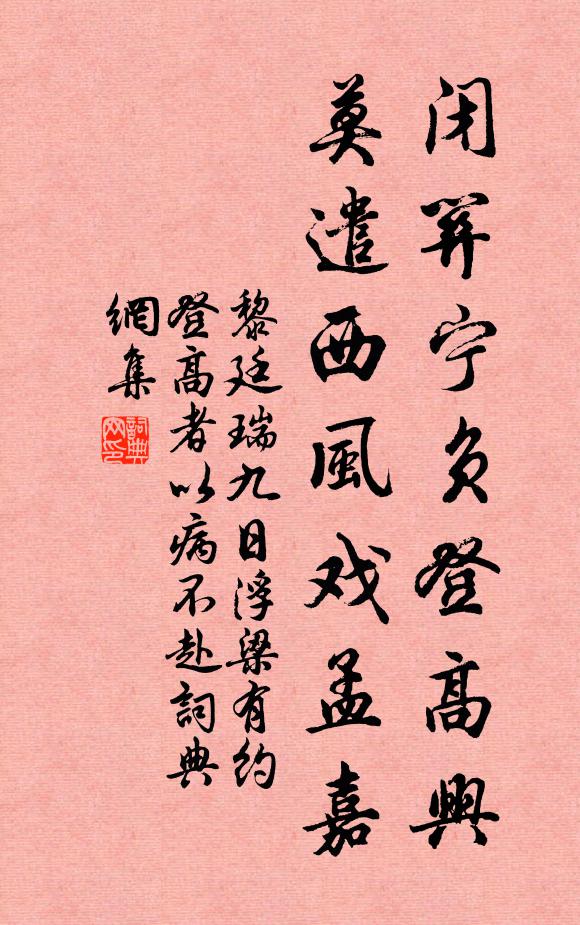 闭關宁负登高興
莫遣西風戏孟嘉
黎廷瑞九日浮梁有约
登高者以病不赴詞典
網集
詞典
网印